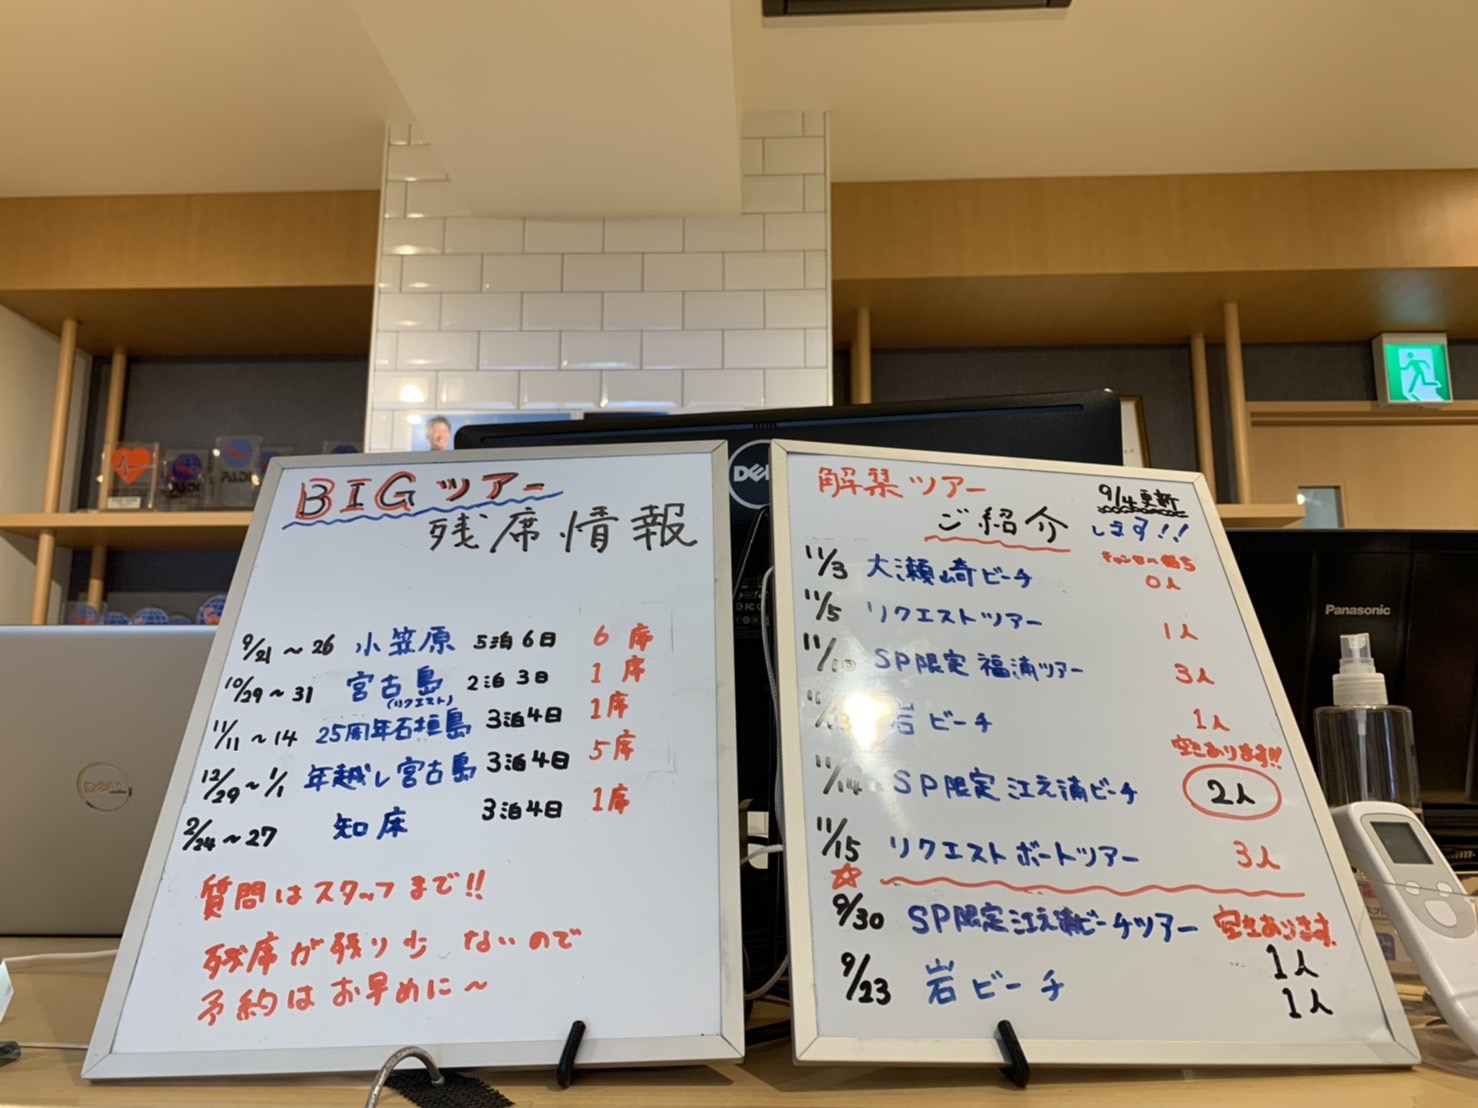 BIGツアー
残席情報
9/21～26 小笠原 5泊6日 6席
10/29～31 宮古島 2泊3日 1席
(リクエスト)
11/11～14 25周年石垣島 3泊4日 1席
12/29～1/1 年越し宮古島 3泊4日 5席
2/24～27 知床 3泊4日 1席
質問はスタッフまで!!
残席が残り少ないので
予約はお早めに～
解禁ツアー
ご紹介
9/4更新
します!!
11/3 大瀬崎ビーチ 0人
11/5 リクエストツアー 1人
11/10 SP限定 福浦ツアー 3人
岩ビーチ 1人
空きあります!!
11/14 SP限定 江之浦ビーチ 2人
11/15 リクエストボートツアー 3人
9/30 SP限定江之浦ビーチツアー 空きあります
1人
9/23 岩ビーチ 1人
DELL
DELL
Panasonic
PADI
PADI